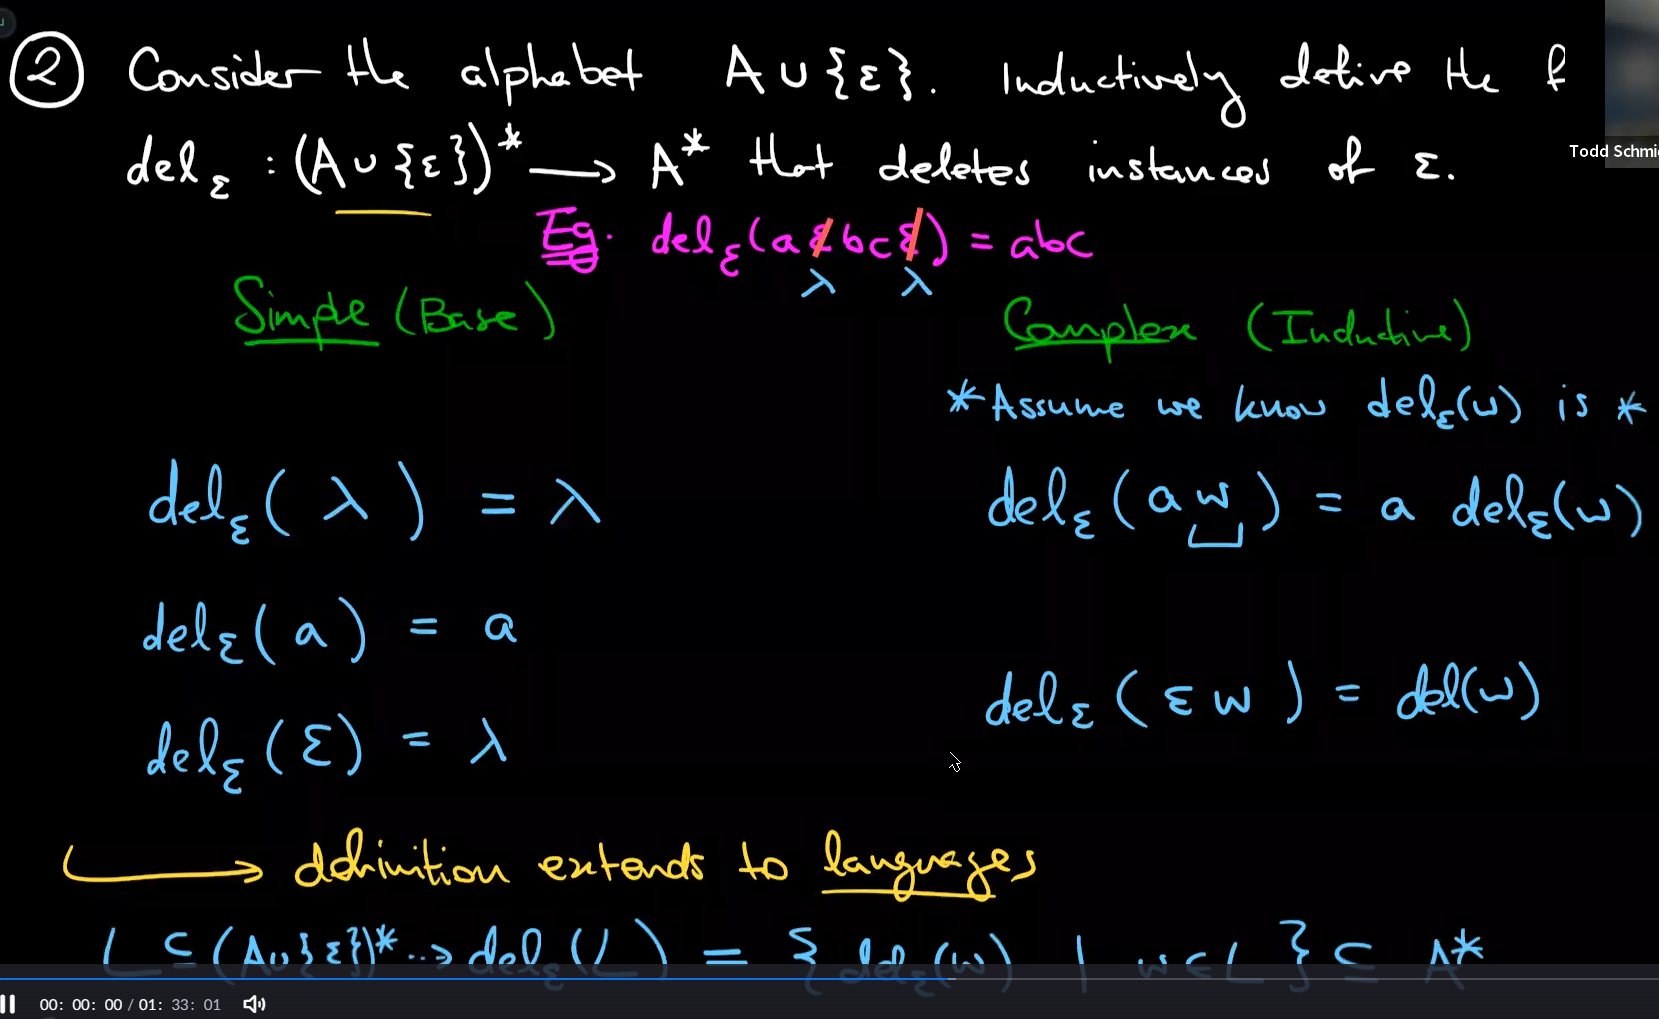 ② Consider the alphabet A ∪ {ε}. Inductively define the f
del_ε : (A ∪ {ε})* ⟶ A* that deletes instances of ε.
Todd Schmi
Eg. del_ε(aεbcε) = abc
λ λ
Simple (Base)
Complex (Inductive)
*Assume we know del_ε(w) is *
del_ε(λ) = λ
del_ε(aw) = a del_ε(w)
del_ε(a) = a
del_ε(εw) = del(w)
del_ε(ε) = λ
⟶ definition extends to languages
L ⊆ (A∪{ε})* ⇢ del_ε(L) = {del_ε(w) | w ∈ L} ⊆ A*
00: 00: 00 / 01: 33: 01